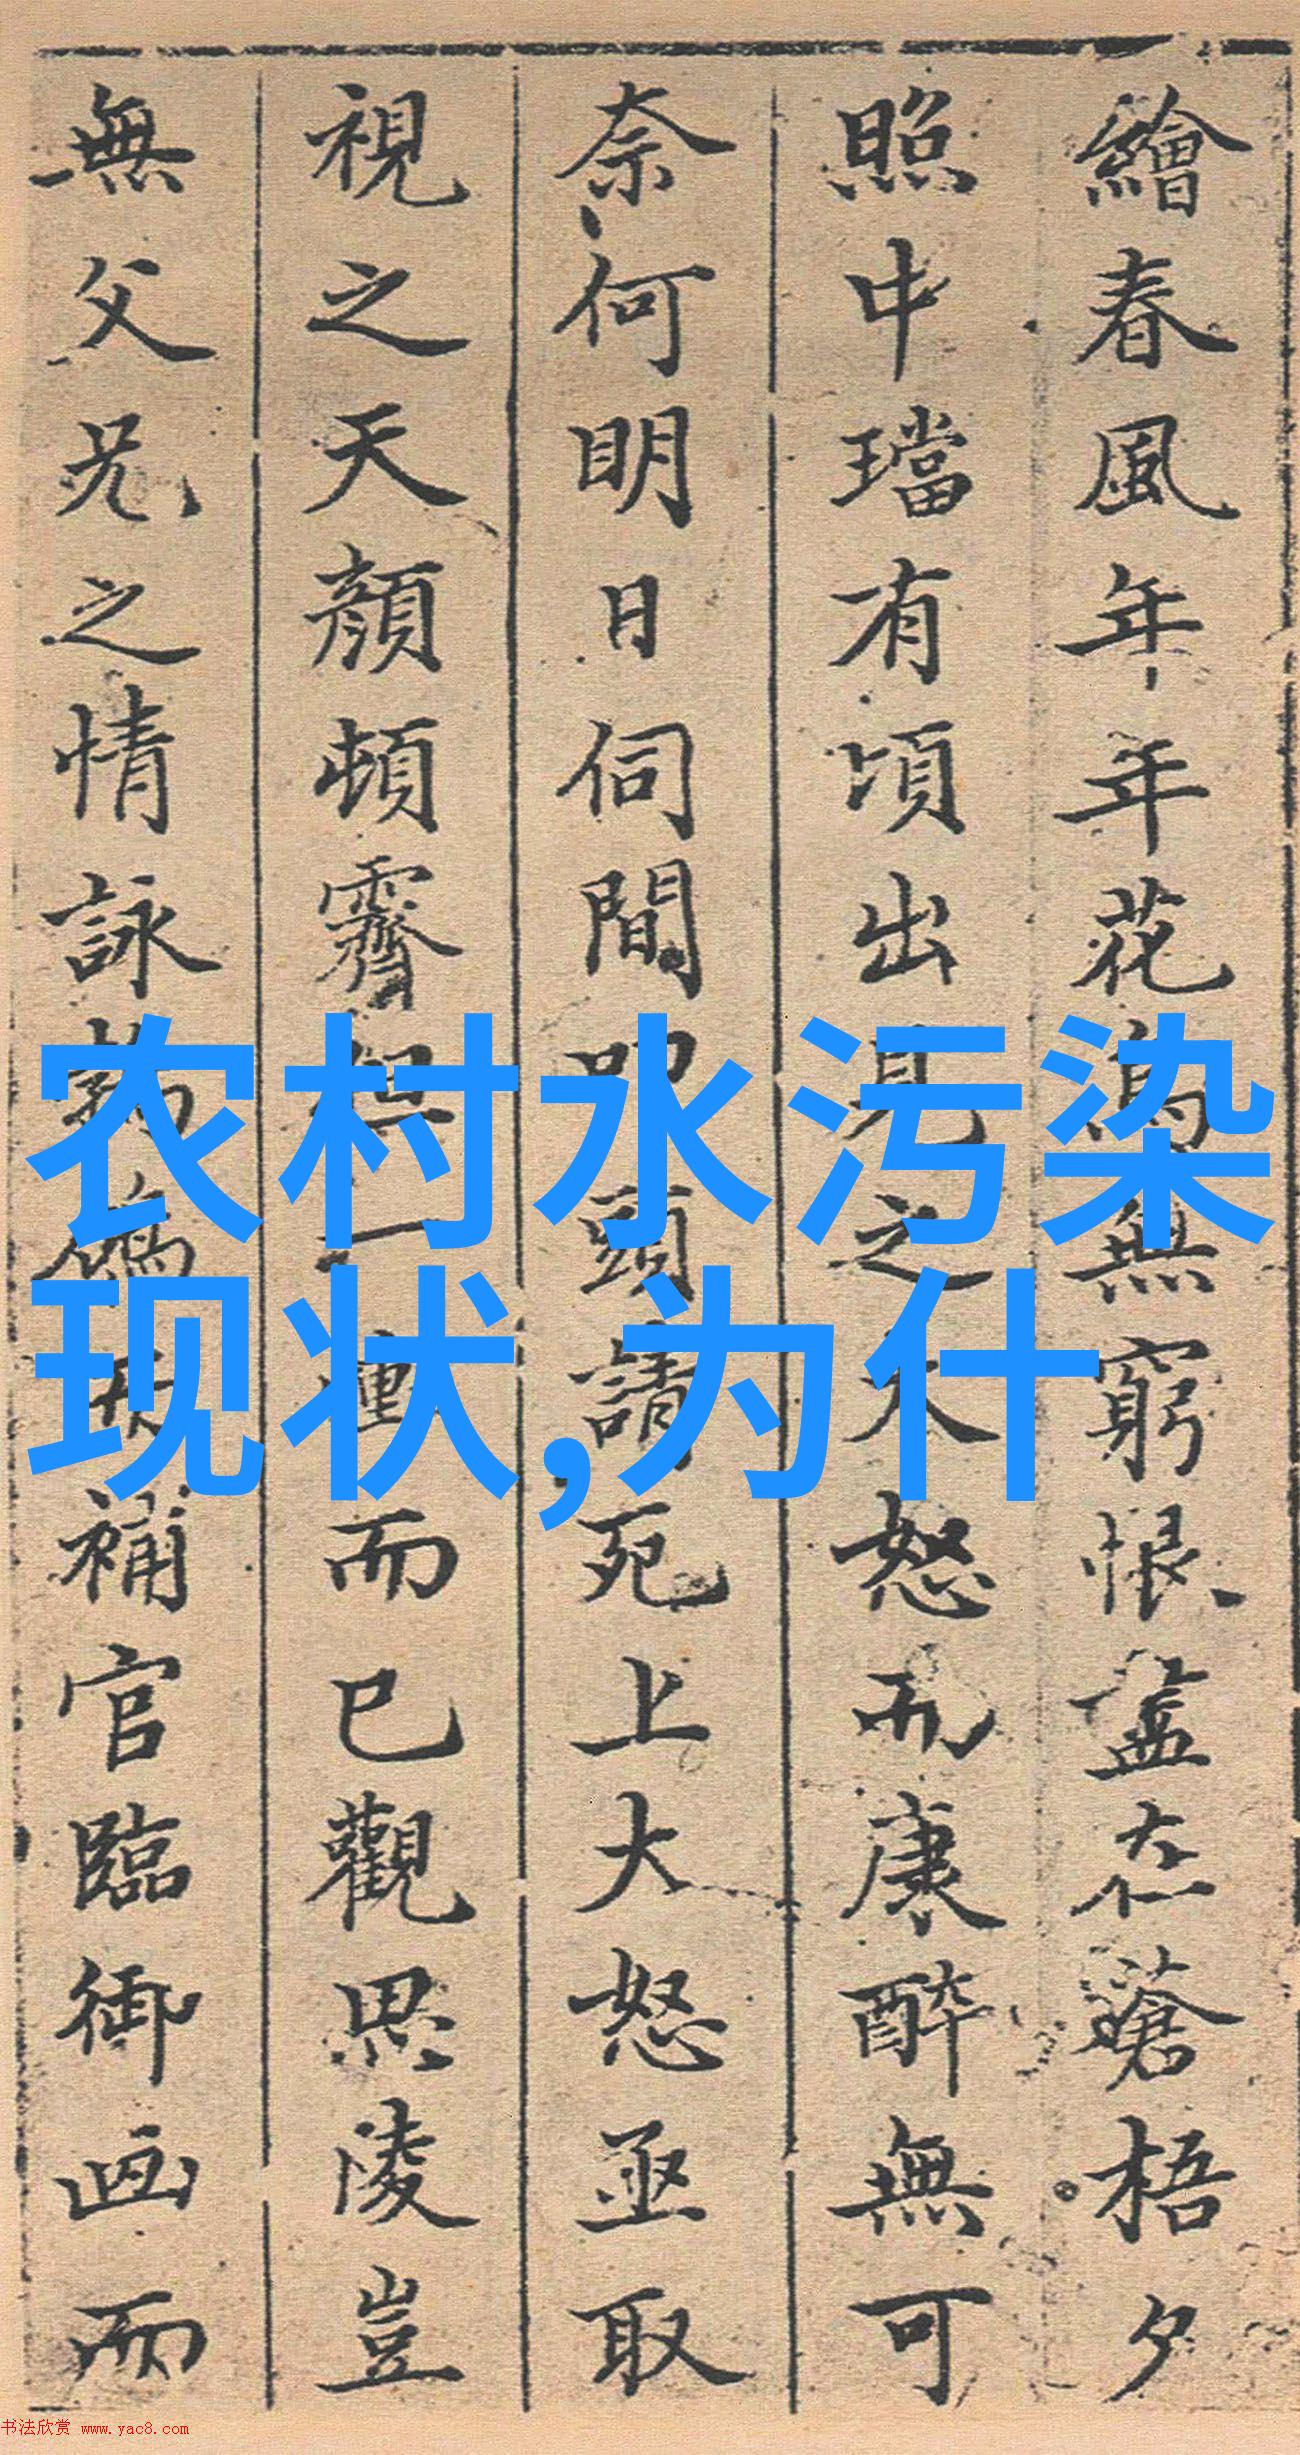 繪春風年年花鳥無窮恨盡在蒼梧夕
照中璫有頃出見之大怒而康醉無可
奈何明日伺間叩頭請死上大怒亟取
視之天顏頓霽但一慟而已觀思陵豈
無父兄之情詠鶺鴒補官臨御画而
农村水污染
现状,为什
书法欣赏 www.yac8.com